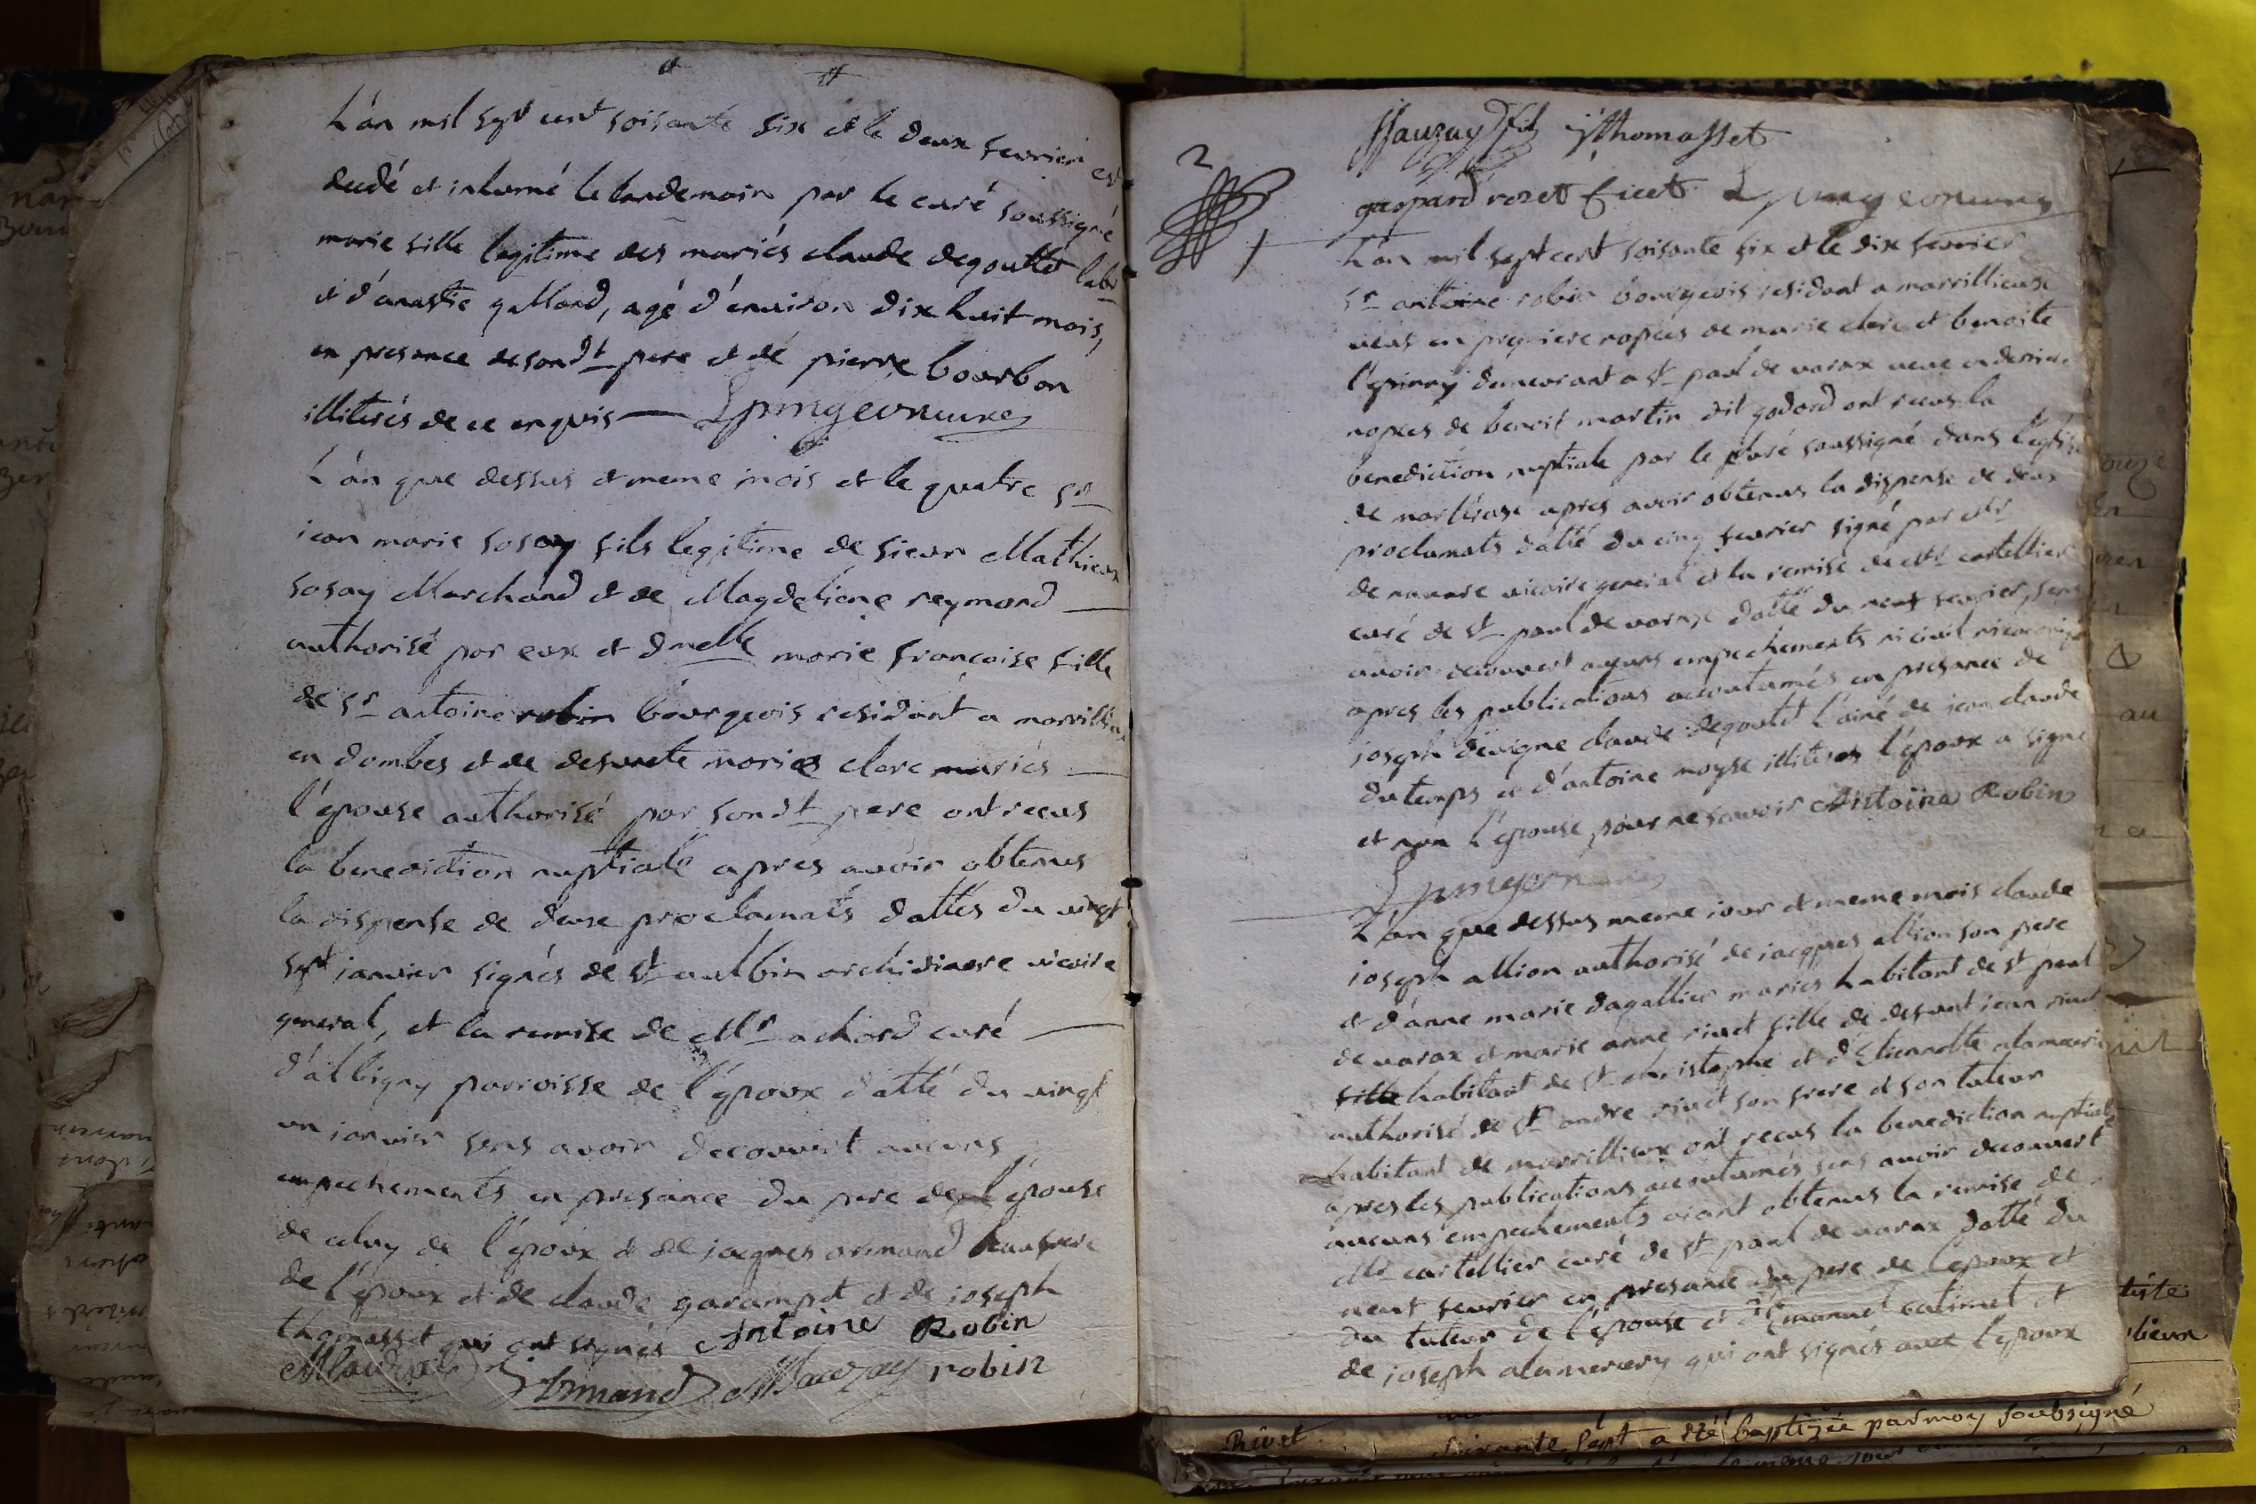 L'an mil sept cent soisante six et le deux fevrier est
decdé et inhumé le landemain par le curé soussigné
marie fille legitime des mariés claude degouttet labr
et d'anastie gallard, agé d'environ dix huit mois,
en presance de sondt pere et de pierre bourbon
illiterés de ce enquis
L'an que dessus et meme mois et le quatre sr
jean marie fosay fils legitime de sieur Mathieux
fosay Marchand et de Magdeliene reymond
authorisé par eux et dmelle marie françoise fille
de sr antoine robin bourgeois residant a marillieux
en dombes et de defunte marie clerc mariés
l'epouse authorisé par sondt pere ont recus
la benediction nuptiale apres avoir obtenus
la dispense de deux proclamats dattés du vingt
sept janvier signés de st aulbin archidiacre vicaire
general, et la remise de Mr achard curé
d'albigny paroisse de l'epoux datté du vingt
un janvier sens avoir decouvert aucuns
empechements en presance du pere de l'epouse
de celuy de l'epoux et de jacques armand beaufrere
de l'epoux et de claude garampt et de joseph
thomasset qui ont signés Antoine Robin
Armand robin
2
fils jthomasset
gaspard rozet
1
L'an mil sept cent soisante six et le dix fevrier
sr antoine robin bourgeois residant a marillieux
veuf en premiere nopces de marie clerc et benoite
l'epinay demeurant a st paul de varax veuve en derniere
nopces de benoit martin dit godard ont recus la
benediction nuptiale par le curé soussigné dans l'eglise
de marillieux apres avoir obtenus la dispense de deux
proclamats datté du cinq fevrier signé par Mr
de navare vicaire general et la remise de Mr cartellier
curé de st paul de varax datté du neuf fevrier, sens
avoir decouvert aucuns empechements ni civil ni canonique
apres les publications accoutumés en presance de
joseph devigne claude degoutet l'ainé de jean claude
dutemps et d'antoine moyse illiterés l'epoux a signé
et non l'epouse pour ne scavoir Antoine Robin
L'an que dessus meme jour et meme mois claude
joseph allion authorisé de jacques allion son pere
et d'anne marie dagallier mariés habitant de st paul
de varax et marie anne rivet fille de defunt jean rivet
habitant de st christophe et d'Etiennette alamercery
authorisé de sr andre rivet son frere et son tuteur
habitant de marillieux ont recus la benediction nuptiale
apres les publications accoutumés sens avoir decouvert
aucuns empechements aiant obtenus la remise de
Mr cartellier curé de st paul de varax datté du
neuf fevrier en presance du pere de l'epoux et
du tuteur de l'epouse et d'Emanuel catimel et
de joseph alamercery qui ont signés avec l'epoux
Rivet
soixante sept a été baptizée par moy soubsigné